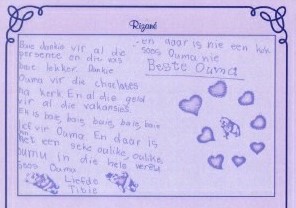 Rizané
Baie dankie vir al die
persente en dit was
baie lekker. Dankie
Ouma vir die charlotes
na kerk En al die geld
vir al die vakansies
En is baie, baie, baie, baie, baie
lief vir Ouma En daar is
net een seke oulike, oulike
oumu in die hele wereld
soos Ouma
Liefde
Tibie
en daar is nie een
soos Ouma nie
Beste Ouma